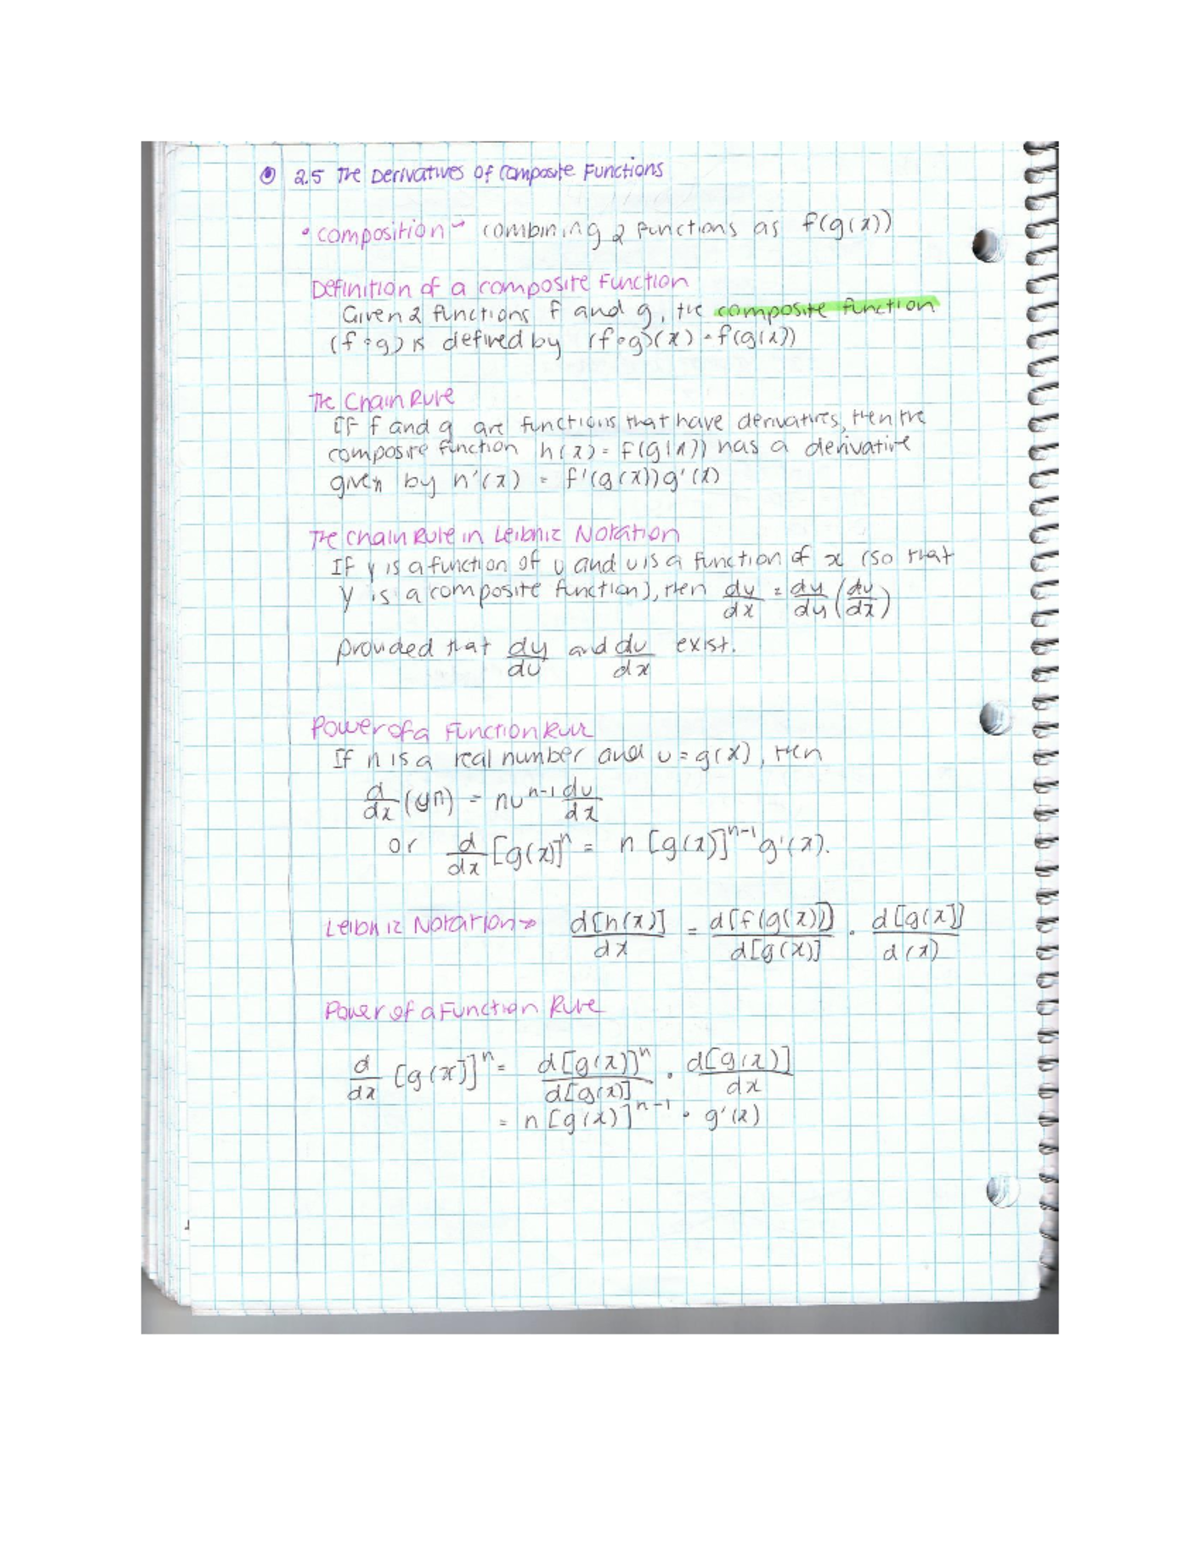 2.5 The Derivatives of Composite Functions
• Composition → combining 2 functions as f(g(x))
Definition of a composite Function
Given 2 functions f and g, the composite function
(f∘g) is defined by (f∘g)(x) = f(g(x))
The Chain Rule
If f and g are functions that have derivatives, then the
composite function h(x) = f(g(x)) has a derivative
given by h'(x) = f'(g(x))g'(x)
The Chain Rule in Leibniz Notation
If y is a function of u and u is a function of x (so that
y is a composite function), then dy/dx = dy/du (du/dx)
provided that dy/du and du/dx exist.
Power of a Function Rule
If n is a real number and u = g(x), then
d/dx (uⁿ) = nuⁿ⁻¹ du/dx
or d/dx [g(x)]ⁿ = n [g(x)]ⁿ⁻¹ g'(x).
Leibniz Notation → d[h(x)]/dx = d[f(g(x))]/d[g(x)] · d[g(x)]/d(x)
Power of a Function Rule
d/dx [g(x)]ⁿ = d[g(x)]ⁿ/d[g(x)] · d[g(x)]/dx
= n[g(x)]ⁿ⁻¹ · g'(x)